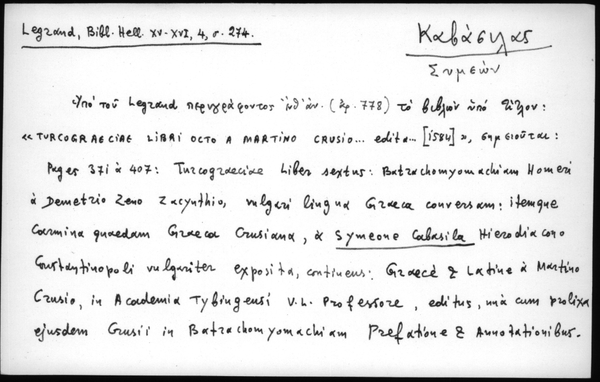 Legrand, Bibl. Hell. XV-XVI, 4, σ. 274.
Καβάσιλας
Συμεών
Ὑπό τοῦ Legrand περιγράφοντος ἐνθ' ἀν. (ἀρ. 778) τό βιβλίον ὑπό τίτλον:
« TURCOGRAECIAE LIBRI OCTO A MARTINO CRUSIO... edita... [1584] », σημειοῦται:
Pages 371 à 407: Turcograeciae Liber sextus: Batrachomyomachiam Homeri
à Demetrio Zeno Zacynthio, vulgari lingua Graeca conversam: itemque
Carmina quaedam Graeca Crusiana, à Symeone Cabasila Hierodiacono
Constantinopoli vulgariter exposita, continens: Graecè & Latine à Martino
Crusio, in Academia Tybingensi V.L. Professore, editus, unà cum prolixa
ejusdem Crusii in Batrachomyomachiam Prefatione & Annotationibus.